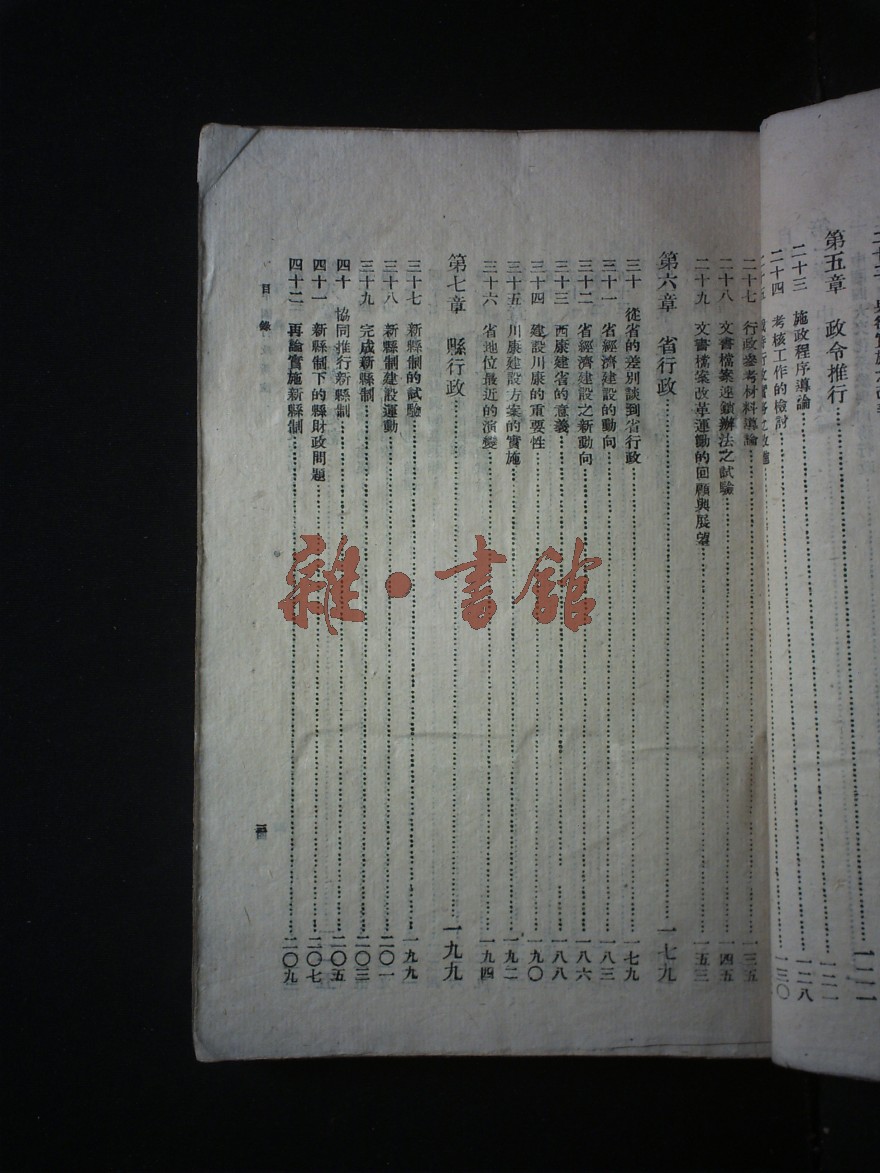 第五章 政令推行……一二一
二十三 施政程序導論……一二一
二十四 考核工作的檢討……一二八
一三〇
二十七 行政參考材料導論……一三五
二十八 文書檔案連鎖辦法之試驗……一四五
二十九 文書檔案改革運動的回顧與展望……一五三
第六章 省行政……一七九
三十 從省的差別談到省行政……一七九
三十一 省經濟建設的動向……一八三
三十二 省經濟建設之新動向……一八六
三十三 西康建省的意義……一八八
三十四 建設川康的重要性……一九〇
三十五 川康建設方案的實施……一九二
三十六 省地位最近的演變……一九四
第七章 縣行政……一九九
三十七 新縣制的試驗……一九九
三十八 新縣制建設運動……二〇一
三十九 完成新縣制……二〇三
四十 協同推行新縣制……二〇五
四十一 新縣制下的縣財政問題……二〇七
四十二 再論實施新縣制……二〇九
目錄
三
雜·書館